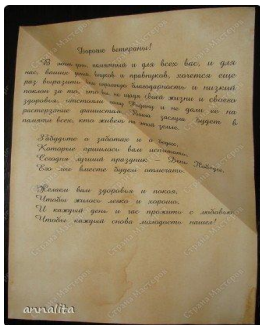 Дорогие ветераны!
В этот день, памятный и для всех вас, и для
нас, ваших внуков и правнуков, хочется еще
раз выразить вам огромную благодарность и низкий
поклон за то, что вы, не щадя своей жизни и своего
здоровья, отстояли нашу Родину и не дали ее на
растерзание фашистам. Ваши заслуги будет в
памяти всех, кто живет на этой земле.
Забудьте о заботах и о
Которые пришлось вам испытать.
Сегодня лучший праздник – День Победы,
Его мы вместе будем отмечать.
Желаем вам здоровья и покоя,
Чтобы жилось легко и хорошо,
И каждый день и час прожить с любовью,
Чтобы каждый снова молодость нашел!
annalita